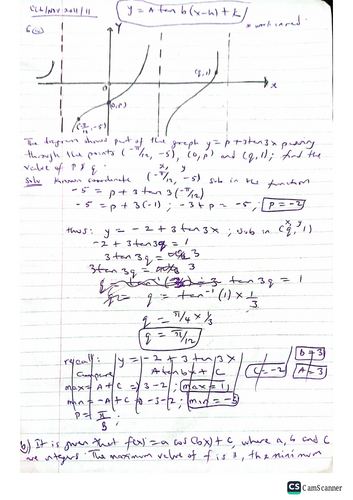 y = A tan b(x-h) + k
6(a)
Y
x
0
(0,p)
(q,1)
(-π/12, -5)
The diagram shows part of the graph y = p + 3tan3x passing
through the points (-π/12, -5), (0, p) and (q, 1); find the
value of p & q.
x, y
Soln Known coordinate (-π/12, -5) sub in the function
-5 = p + 3 tan 3(-π/12)
-5 = p + 3(-1) ; -3 + p = -5 ; p = -2
thus: y = -2 + 3 tan 3x ; sub in (q, 1)
-2 + 3tan3q = 1
3 tan 3q = 3
3 tan 3q = 3
tan 3q = 1
q = tan⁻¹(1) × 1/3
q = π/4 × 1/3
q = π/12
recall: y = -2 + 3 tan 3x
b = 3
Compare A tan bx + C
C = -2
A = 3
max = A + C = 3 - 2 ; max = 1
min = -A + C = -3 - 2 ; min = -5
P = π/3
b) It is given that f(x) = a cos(bx) + c, where a, b and c
are integers. The maximum value of f is 3, the minimum
CS CamScanner